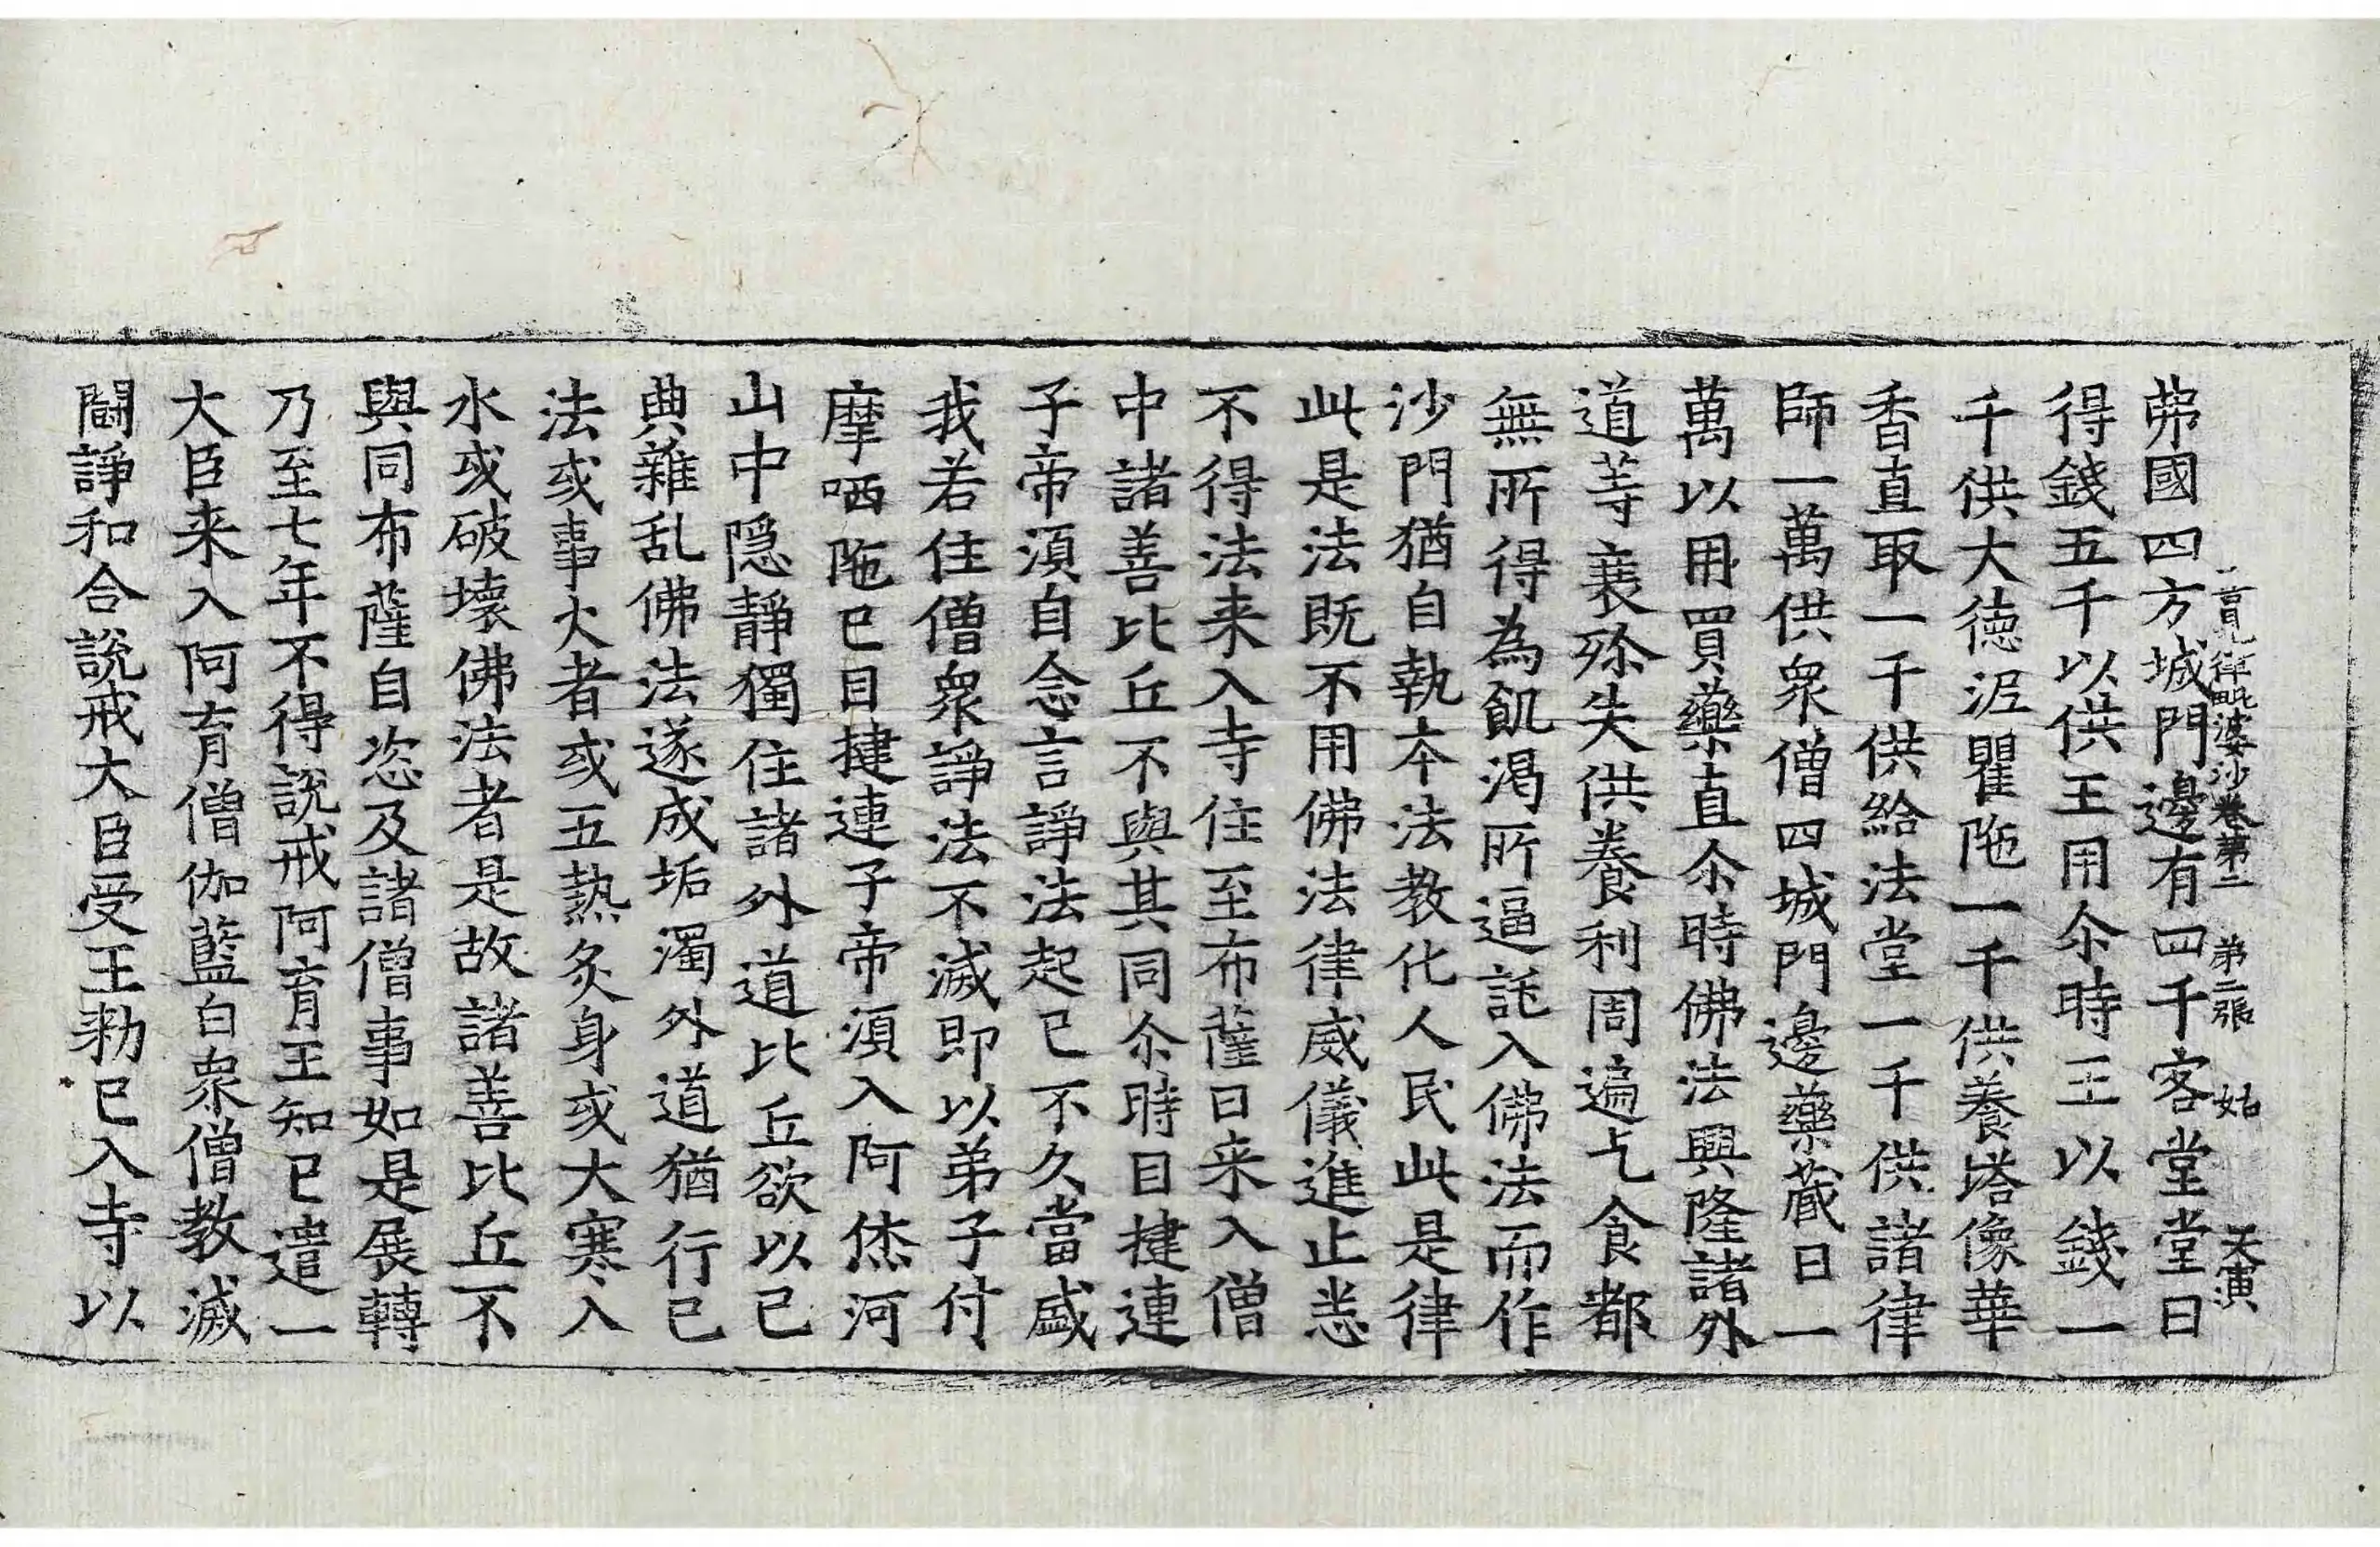 弗國四方城門邊有四千客堂堂日
善見律毗婆沙卷第二　第二張　姑　天寅
得錢五千以供王用尒時王以錢一
千供大德泥瞿陁一千供養塔像華
香直取一千供給法堂一千供諸律
師一萬供衆僧四城門邊藥藏日一
萬以用買藥直尒時佛法興隆諸外
道䓁衰殄失供養利周遍乞食都
無所得為飢渴所逼託入佛法而作
沙門猶自執本法教化人民此是律
此是法既不用佛法律威儀進止悉
不得法来入寺住至布薩日来入僧
中諸善比丘不與其同尒時目揵連
子帝湏自念言諍法起已不久當盛
我若住僧衆諍法不滅即以弟子付
摩哂陁已目揵連子帝湏入阿烋河
山中隱靜獨住諸外道比丘欲以已
典雜乱佛法遂成垢濁外道猶行已
法或事火者或五熱炙身或大寒入
水或破壞佛法者是故諸善比丘不
與同布薩自恣及諸僧事如是展轉
乃至七年不得說戒阿育王知已遣一
大臣来入阿育僧伽藍白衆僧教滅
鬪諍和合說戒大臣受王勑已入寺以